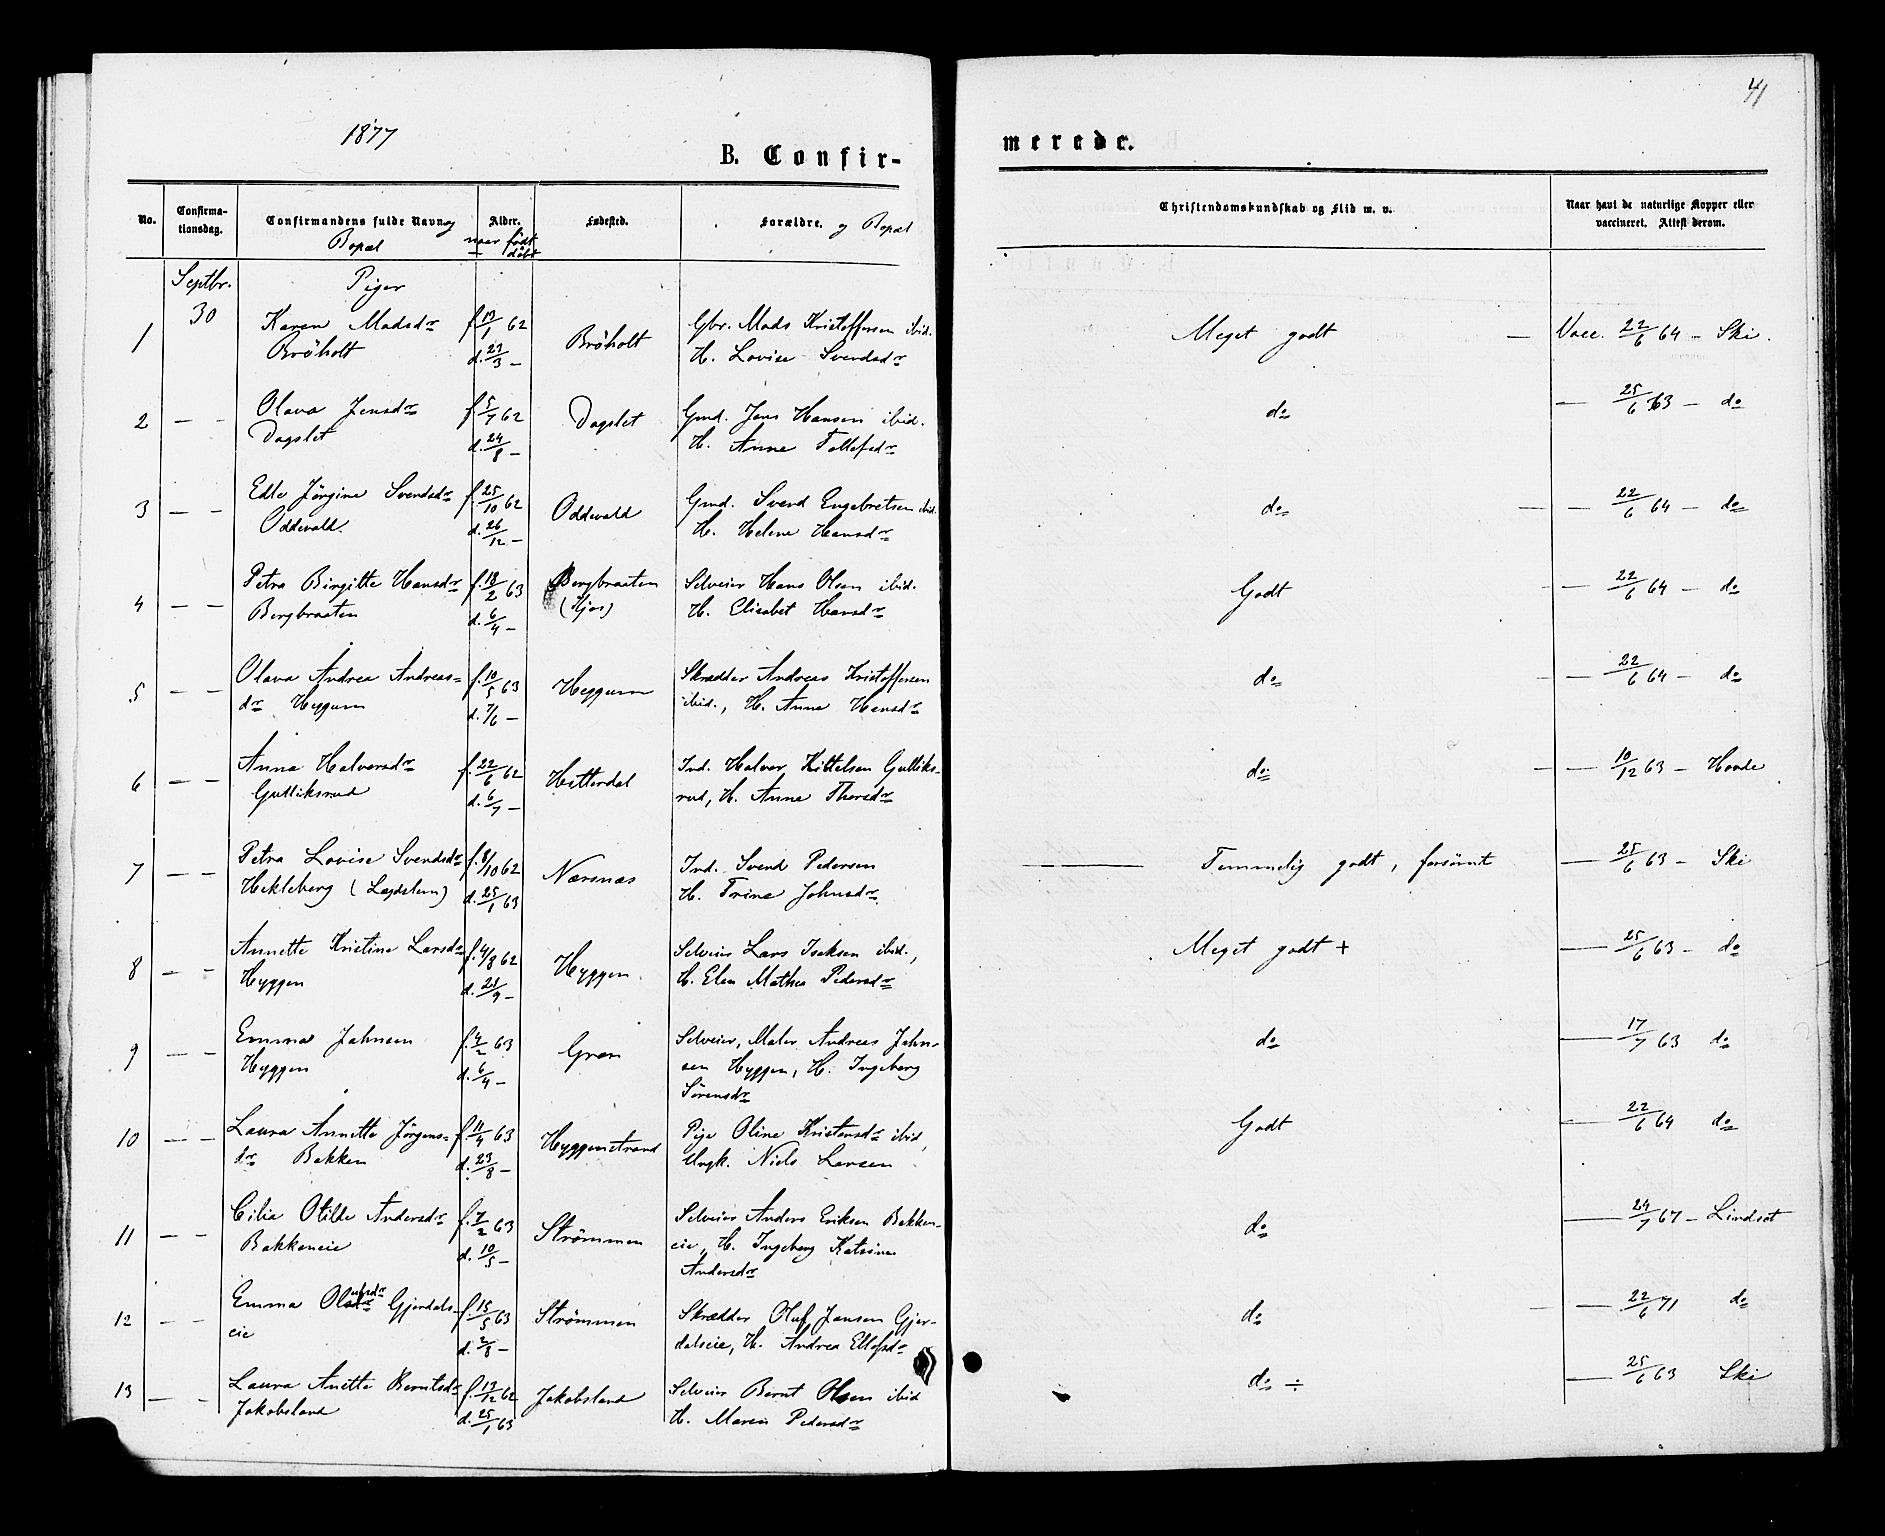 41
1877
B. Confir-
merede.
No.
Confirma-
tionsdag.
Confirmandens fulde Navn og
Bopæl
Alder.
naar født
døbt
Fødested.
Forældre. og Bopæl
Christendomskundskab og Flid m. v.
Naar havt de naturlige Kopper eller
vaccineret. Attest derom.
Septbr. Piger
1 30 Karen Madsdr f. 19/1 62 Bröholt Gbr. Mads Kristoffersen ibid. Meget godt — Vacc. 22/6 64 – Ski.
Bröholt d. 23/3 – H. Lovise Svendsdr
2 — — Olava Jensdr f. 5/7 62 Dagslet Gmd. Jens Hansen ibid. do — 25/6 63 – do
Dagslet d. 24/8 – H. Anne Tollefsdr
3 — — Edle Jörgine Svendsdr f. 25/10 62 Oddevald Gmd. Svend Engebretsen ibid. do — — 22/6 64 – do
Oddevald. d. 26/12 – H. Helene Hansdr
4 — — Petra Birgitte Hansdr f. 18/2 63 Bergbraaten Selveier Hans Olsen ibid. Godt — 22/6 64 – do
Bergbraaten d. 6/4 – (Kjos) H. Elisabet Hansdr
5 — — Olava Andrea Andreas- f. 10/5 63 Heggum Skrædder Andreas Kristoffersen do — — 22/6 64 – do
dr Heggum d. 7/6 – ibid., H. Anne Hansdr
6 — — Anna Halvorsdr f. 22/6 62 Hitterdal Ind. Halvor Kittelsen Gulliks- do — — 10/12 63 – Hovde
Gulliksrud d. 6/7 – rud, H. Anne Thorsdr
7 — — Petra Lovise Svendsdr f. 8/10 62 Nærsnæs Ind. Svend Pedersen — Temmelig godt, forsömt — 25/6 63 – Ski
Hekleberg (Lægdslem) d. 25/1 63 H. Trine Johnsdr.
8 — — Annette Kristine Larsdr f. 4/8 62 Hyggen Selveier Lars Isaksen ibid., Meget godt + — 25/6 63 – do
Hyggen d. 21/9 – H. Elen Mathea Pedersdr
9 — — Emma Jahnsen f. 4/2 63 Gran Selveier, Maler Andreas Jahn- do — 17/7 63 do
Hyggen d. 6/4 – sen Hyggen, H. Ingeborg
Sörensdr
10 — — Laura Annette Jörgens- f. 11/4 63 Hyggenstrand Pige Oline Kristensdr ibid, Godt — 22/6 64 do
dr Bakken d. 23/8 – Ungk. Niels Larsen
11 — — Cilia Otilde Andersdr f. 7/2 63 Strømmen Selveier Anders Eriksen Bakken- do — 24/7 67 – Lindset
Bakkeneie d. 10/5 – eie, H. Ingeborg Katrine
Andersdr
12 — — Emma Olufsdr Gjerdals- f. 15/5 63 Strømmen Skrædder Oluf Jansen Gjer- do — — 22/6 71 do
eie d. 2/8 – dalseie, H. Andrea Ellefsdr
13 — — Laura Anette Berntsdr f. 13/12 62 Jakobsland Selveier Bernt Olsen ibid do ÷ — 25/6 63 Ski
Jakobsland d. 25/1 63 H. Maren Pedersdr